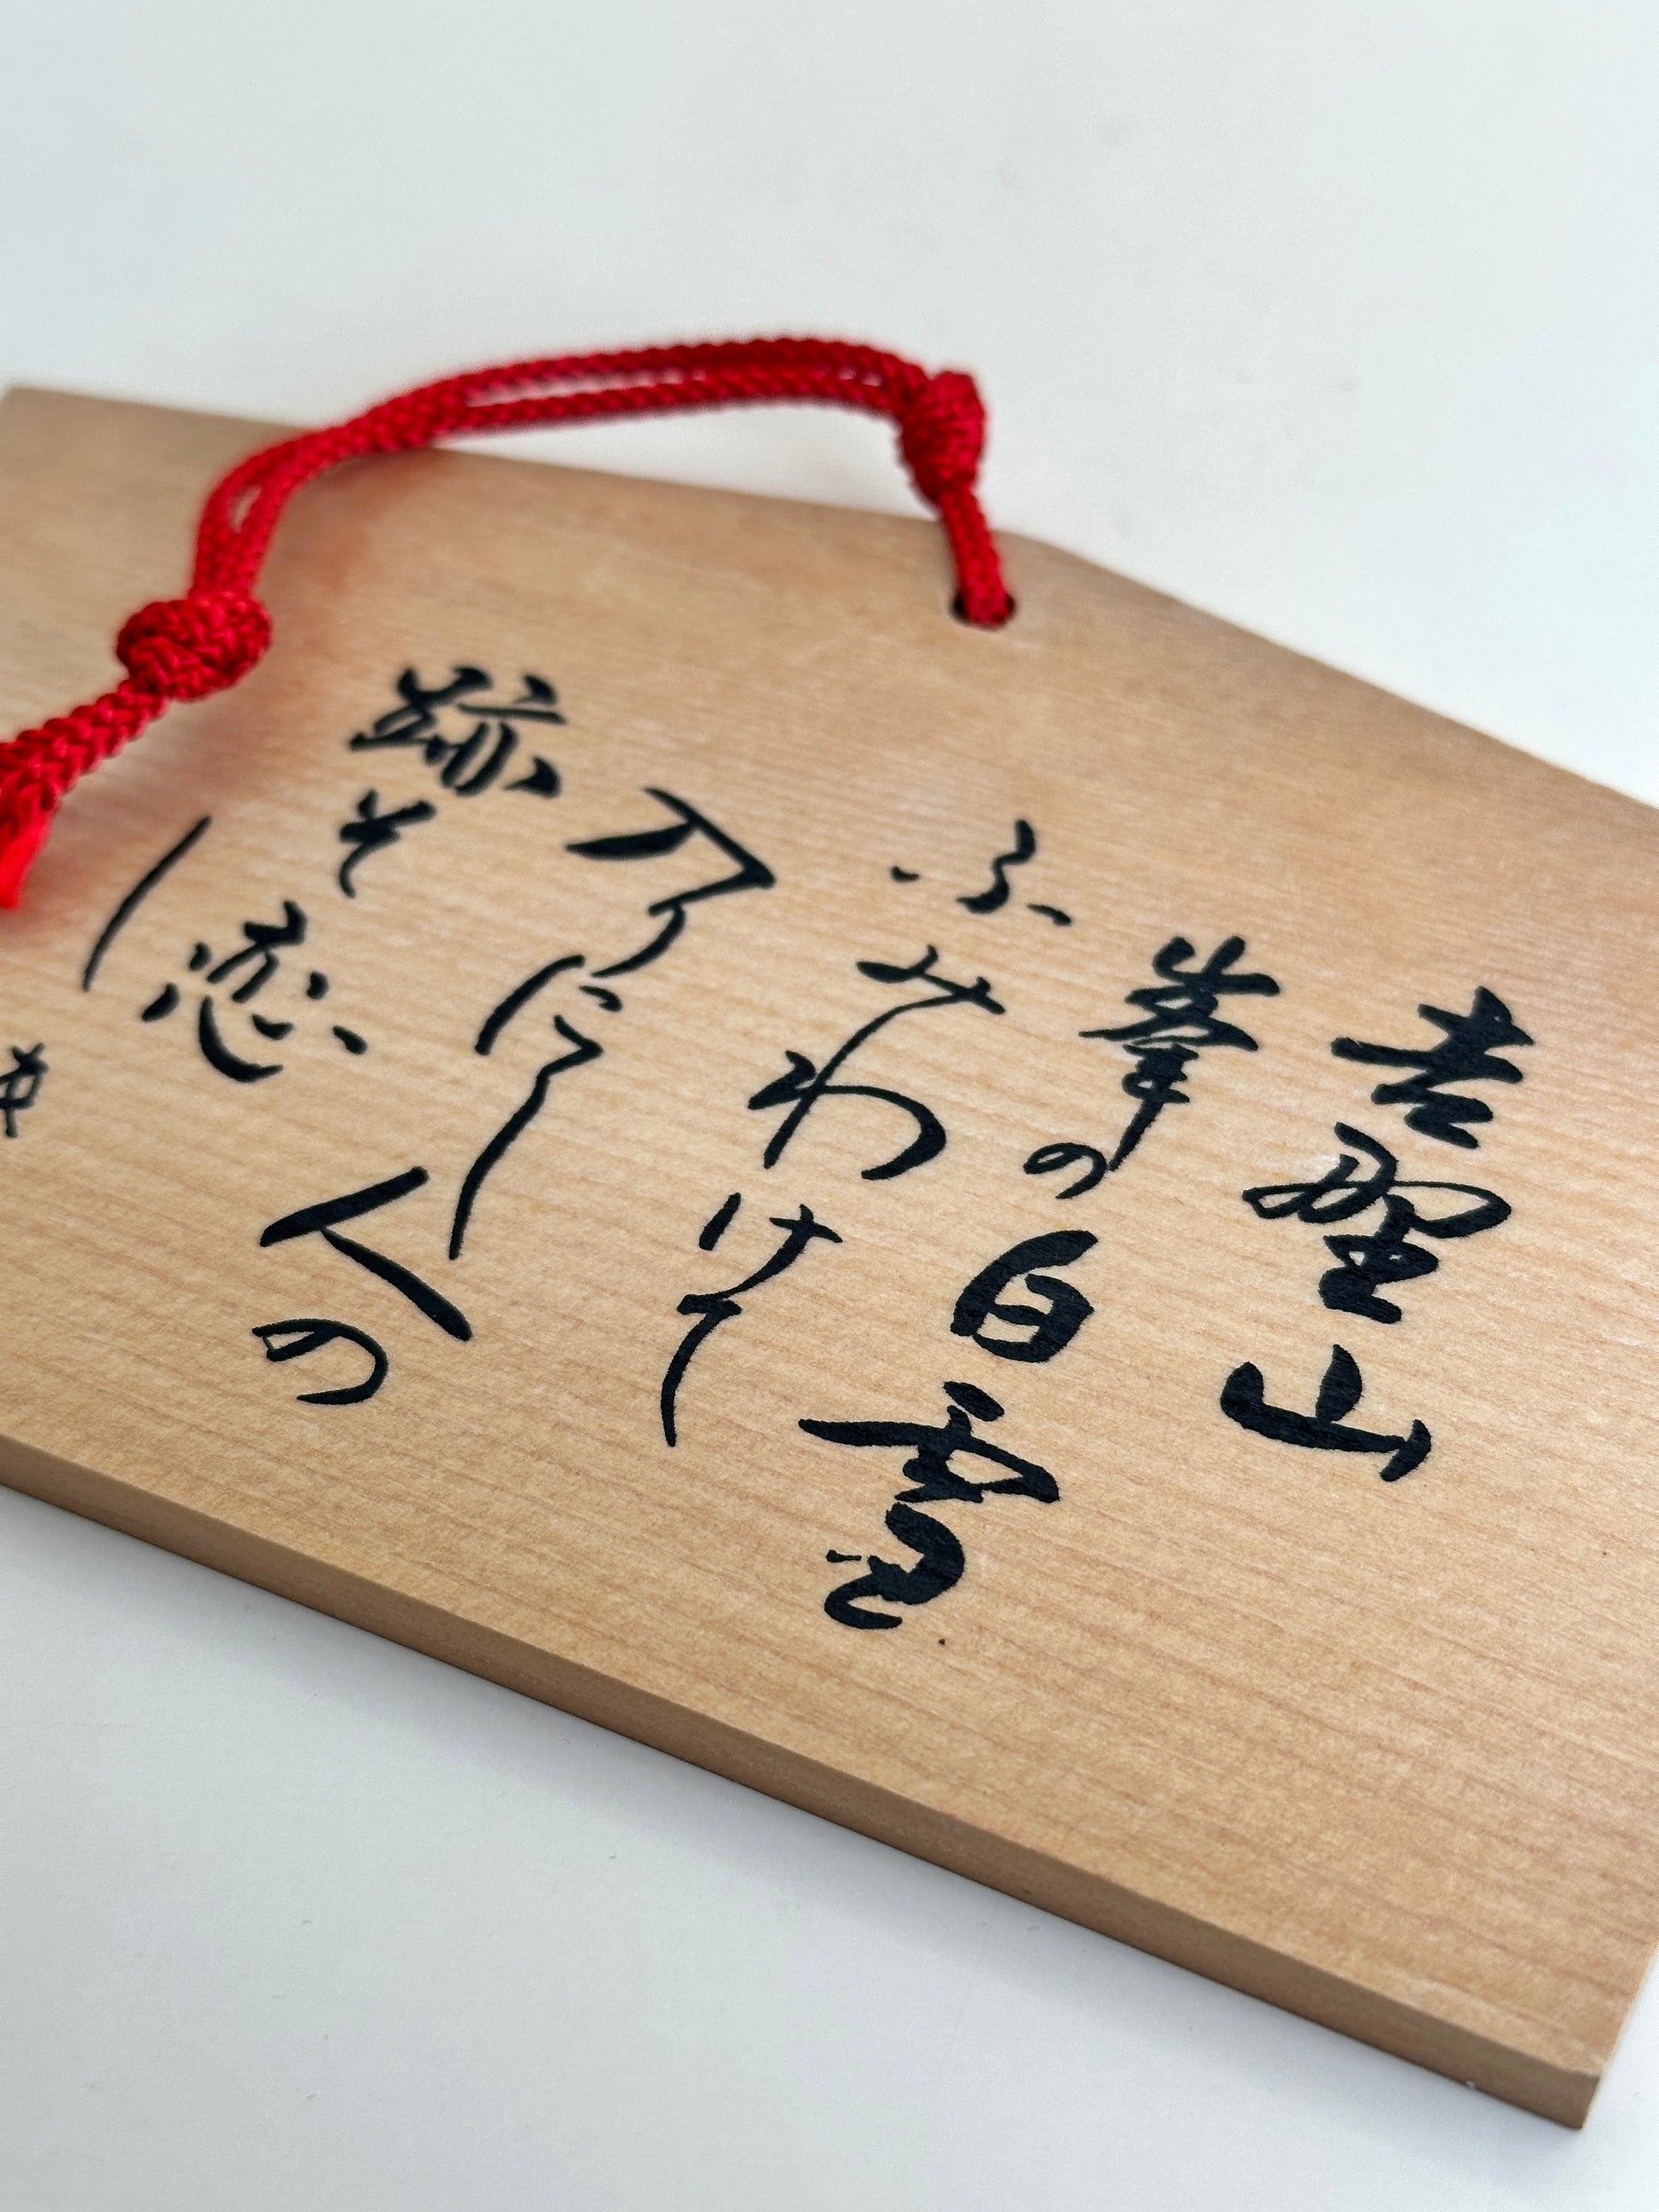 吉野山
峯の白雪
ふみわけて
入りにし
人の
跡そ恋
し